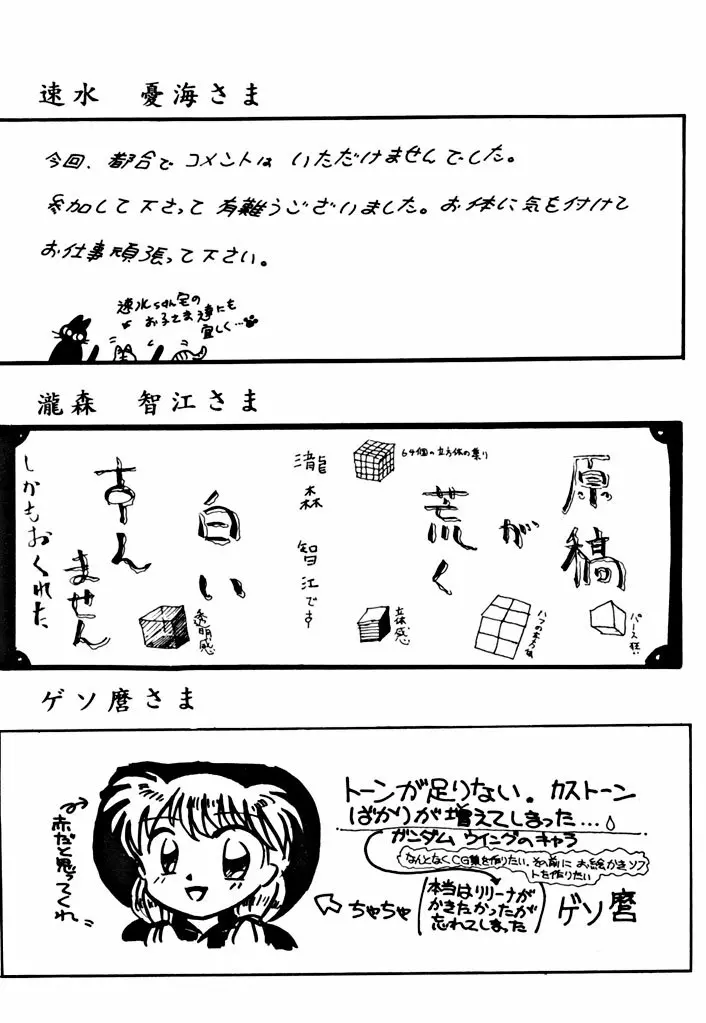 速水　憂海さま
今回、都合でコメントは いただけませんでした。
参加して下さって有難うございました。お体に気を付けて
お仕事頑張って下さい。
速水ちゃん宅の
お子さま達にも
宜しく…
瀧森　智江さま
原稿
が
荒く
64個の立方体の集り
瀧森 智江です
白い
すん
ません
しかもおくれた
パース狂い
立体感
透明感
ゲソ麿さま
トーンが足りない。カストーン
ばかりが増えてしまった…
ガンダム ウイングのキャラ
なんとなくCG集を作りたい。その前に お絵かきソフ
トを作りたい
本当はリリーナが
かきたかったが
忘れてしまった
ゲソ麿
ちゃちゃ
赤だと思ってくれ。